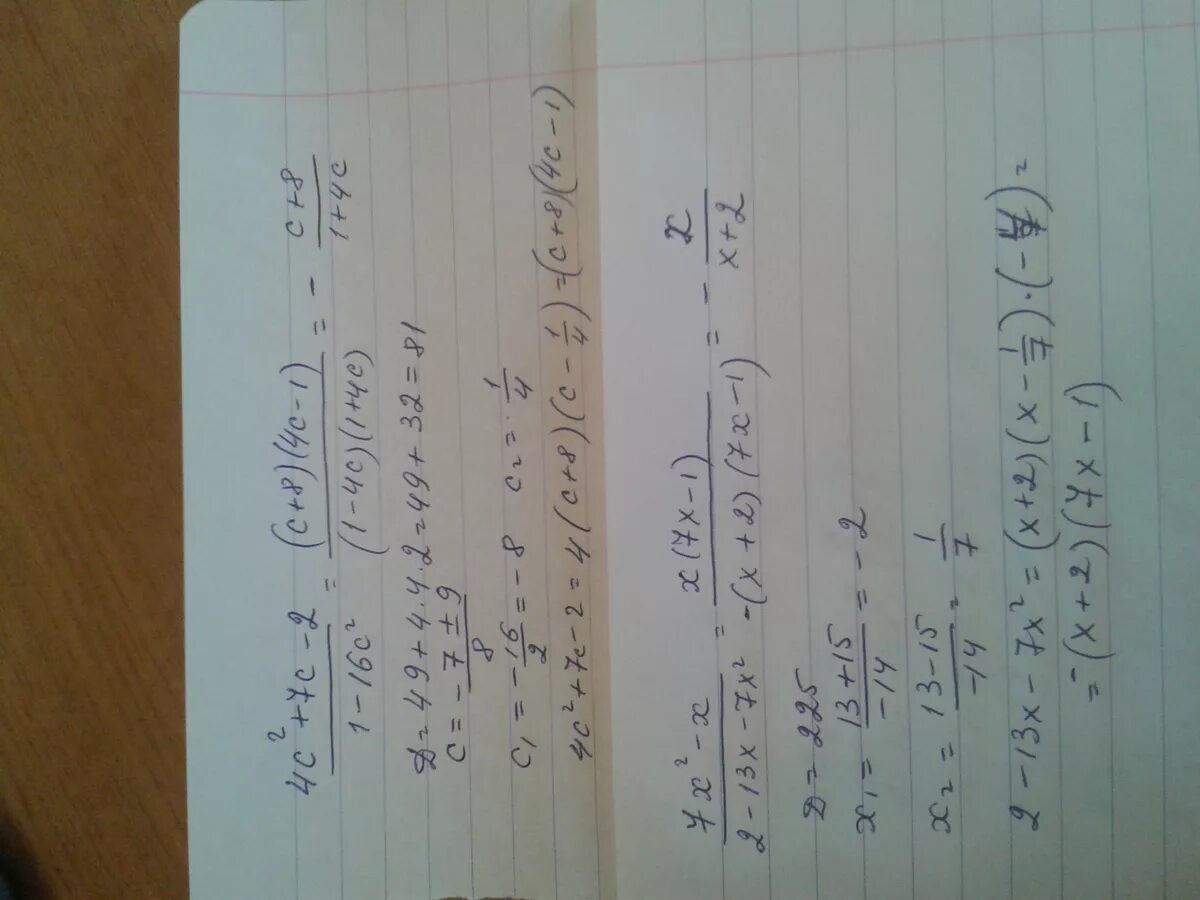 (4c²+7c-2)/(1-16c²) = ((c+8)(4c-1))/((1-4c)(1+4c)) = - (c+8)/(1+4c)
D=49+4·4·2=49+32=81
c = (-7±9)/8
c₁ = -16/2 = -8 c₂ = 1/4
4c²+7c-2=4(c+8)(c-1/4)=(c+8)(4c-1)
(7x²-x)/(2-13x-7x²) = (x(7x-1))/(-(x+2)(7x-1)) = - x/(x+2)
D=225
x₁ = (13+15)/-14 = -2
x₂ = (13-15)/-14 = 1/7
2-13x-7x² = (x+2)(x-1/7)·(-7) =
= -(x+2)(7x-1)